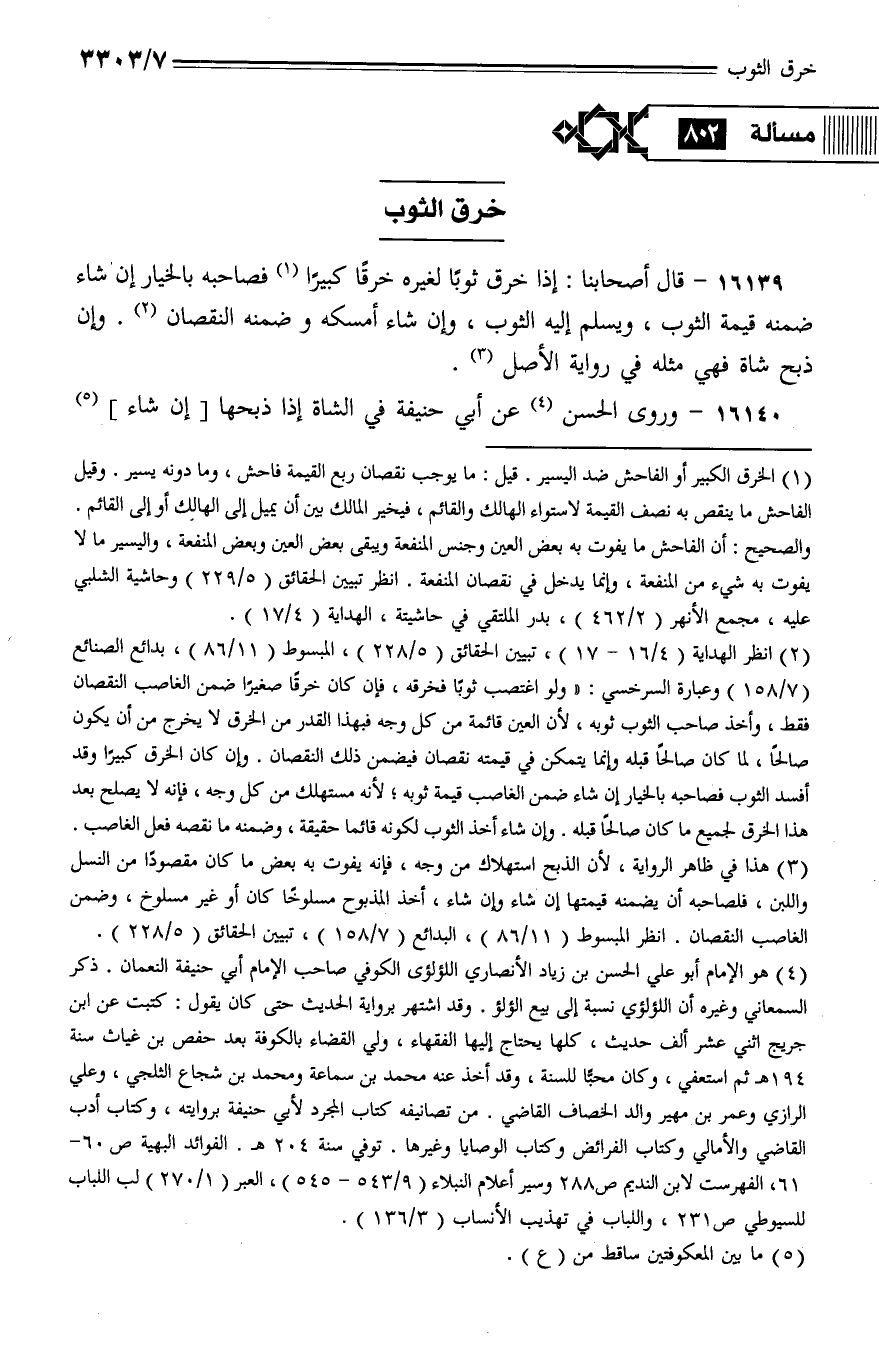 خرق الثوب ٣٣٠٣/٧
مسألة ٨٠٢
خرق الثوب
١٦١٣٩ - قال أصحابنا : إذا خرق ثوبًا لغيره خرقًا كبيرًا (١) فصاحبه بالخيار إن شاء
ضمنه قيمة الثوب ، ويسلم إليه الثوب ، وإن شاء أمسكه و ضمنه النقصان (٢) . وإن
ذبح شاة فهي مثله في رواية الأصل (٣) .
١٦١٤٠ - وروى الحسن (٤) عن أبي حنيفة في الشاة إذا ذبحها [ إن شاء ] (٥)
(١) الخرق الكبير أو الفاحش ضد اليسير . قيل : ما يوجب نقصان ربع القيمة فاحش ، وما دونه يسير . وقيل
الفاحش ما ينقص به نصف القيمة لاستواء الهالك والقائم ، فيخير المالك بين أن يميل إلى الهالك أو إلى القائم .
والصحيح : أن الفاحش ما يفوت به بعض العين وجنس المنفعة ويبقى بعض العين وبعض المنفعة ، واليسير ما لا
يفوت به شيء من المنفعة ، وإنما يدخل في نقصان المنفعة . انظر تبيين الحقائق ( ٢٢٩/٥ ) وحاشية الشلبي
عليه ، مجمع الأنهر ( ٤٦٢/٢ ) ، بدر الملتقي في حاشيتة ، الهداية ( ١٧/٤ ) .
(٢) انظر الهداية ( ١٦/٤ - ١٧ ) ، تبيين الحقائق ( ٢٢٨/٥ ) ، المبسوط ( ٨٦/١١ ) ، بدائع الصنائع
( ١٥٨/٧ ) وعبارة السرخسي : « ولو اغتصب ثوبًا فخرقه ، فإن كان خرقًا صغيرًا ضمن الغاصب النقصان
فقط ، وأخذ صاحب الثوب ثوبه ، لأن العين قائمة من كل وجه فبهذا القدر من الخرق لا يخرج من أن يكون
صالحًا ، لما كان صالحًا قبله وإنما يتمكن في قيمته نقصان فيضمن ذلك النقصان . وإن كان الخرق كبيرًا وقد
أفسد الثوب فصاحبه بالخيار إن شاء ضمن الغاصب قيمة ثوبه ؛ لأنه مستهلك من كل وجه ، فإنه لا يصلح بعد
هذا الخرق لجميع ما كان صالحًا قبله . وإن شاء أخذ الثوب لكونه قائما حقيقة ، وضمنه ما نقصه فعل الغاصب .
(٣) هذا في ظاهر الرواية ، لأن الذبح استهلاك من وجه ، فإنه يفوت به بعض ما كان مقصودًا من النسل
واللبن ، فلصاحبه أن يضمنه قيمتها إن شاء وإن شاء ، أخذ المذبوح مسلوخًا كان أو غير مسلوخ ، وضمن
الغاصب النقصان . انظر المبسوط ( ٨٦/١١ ) ، البدائع ( ١٥٨/٧ ) ، تبيين الحقائق ( ٢٢٨/٥ ) .
(٤) هو الإمام أبو علي الحسن بن زياد الأنصاري اللؤلؤى الكوفي صاحب الإمام أبي حنيفة النعمان . ذكر
السمعاني وغيره أن اللؤلؤي نسبة إلى بيع الؤلؤ . وقد اشتهر برواية الحديث حتى كان يقول : كتبت عن ابن
جريج اثني عشر ألف حديث ، كلها يحتاج إليها الفقهاء ، ولي القضاء بالكوفة بعد حفص بن غياث سنة
١٩٤هـ ثم استعفي ، وكان محبًّا للسنة ، وقد أخذ عنه محمد بن سماعة ومحمد بن شجاع الثلجي ، وعلي
الرازي وعمر بن مهير والد الخصاف القاضي . من تصانيفه كتاب المجرد لأبي حنيفة بروايته ، وكتاب أدب
القاضي والأمالي وكتاب الفرائض وكتاب الوصايا وغيرها . توفي سنة ٢٠٤ هـ . الفوائد البهية ص ٦٠-
٦١، الفهرست لابن النديم ص٢٨٨ وسير أعلام النبلاء ( ٥٤٣/٩ - ٥٤٥ ) ، العبر ( ٢٧٠/١ ) لب اللباب
للسيوطي ص٢٣١ ، واللباب في تهذيب الأنساب ( ١٣٦/٣ ) .
(٥) ما بين المعكوفتين ساقط من ( ع ) .